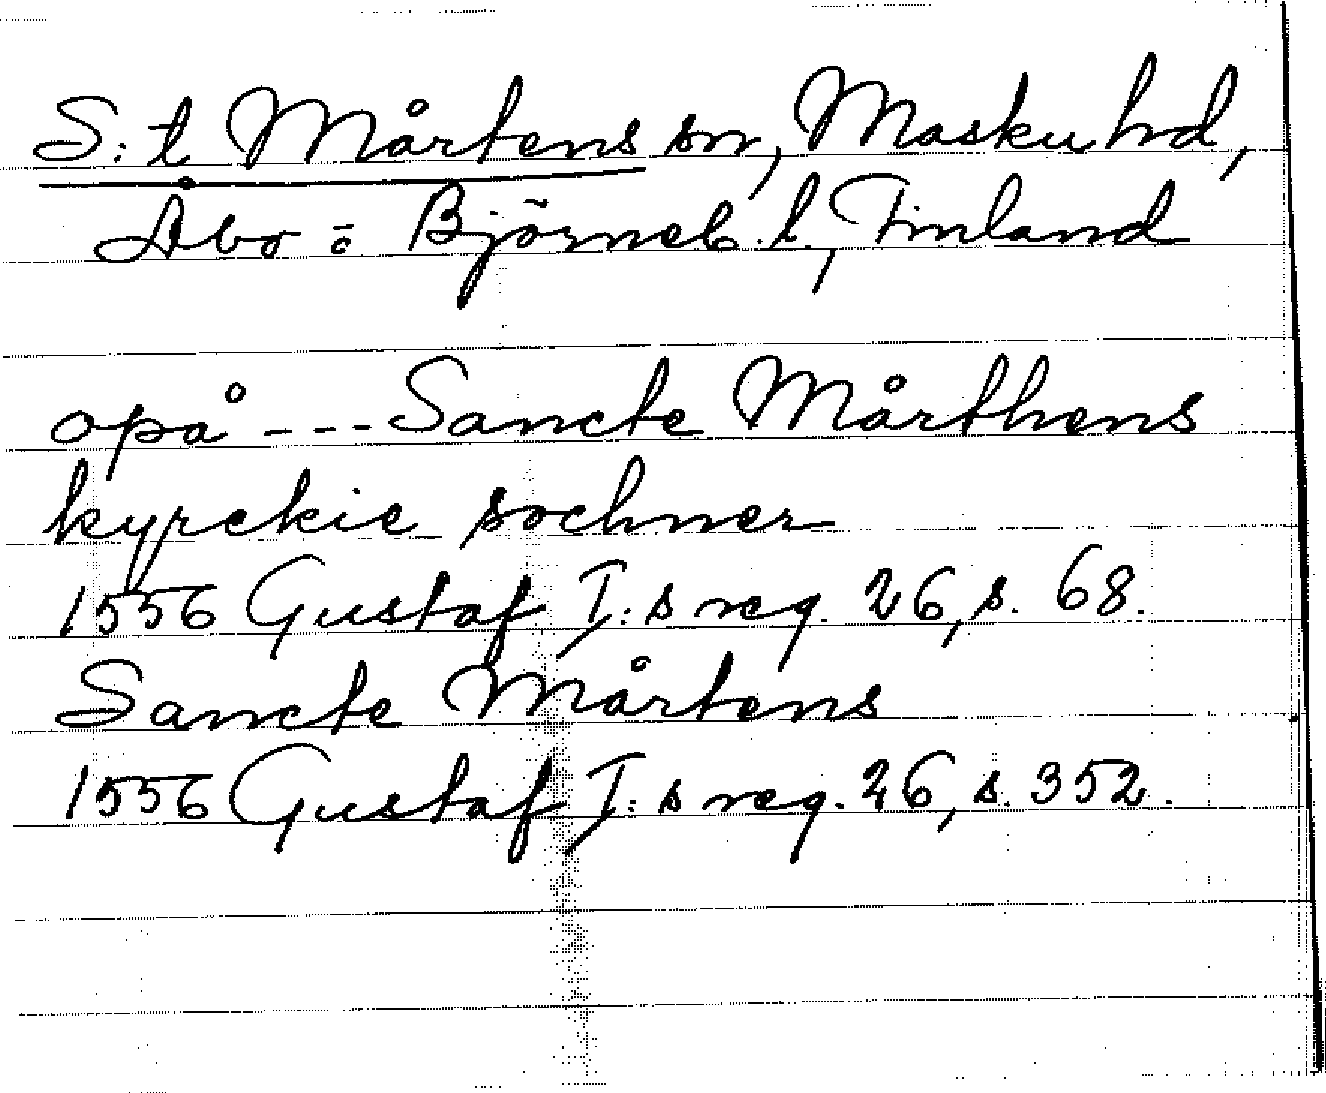 S:t Mårtens sn, Masku hd,
Åbo o Björneb. l., Finland
opå --- Sancte Mårthens
kyrckie sochner
1556 Gustaf I:s reg. 26, s. 68.
Sancte Mårtens
1556 Gustaf I:s reg. 26, s. 352.